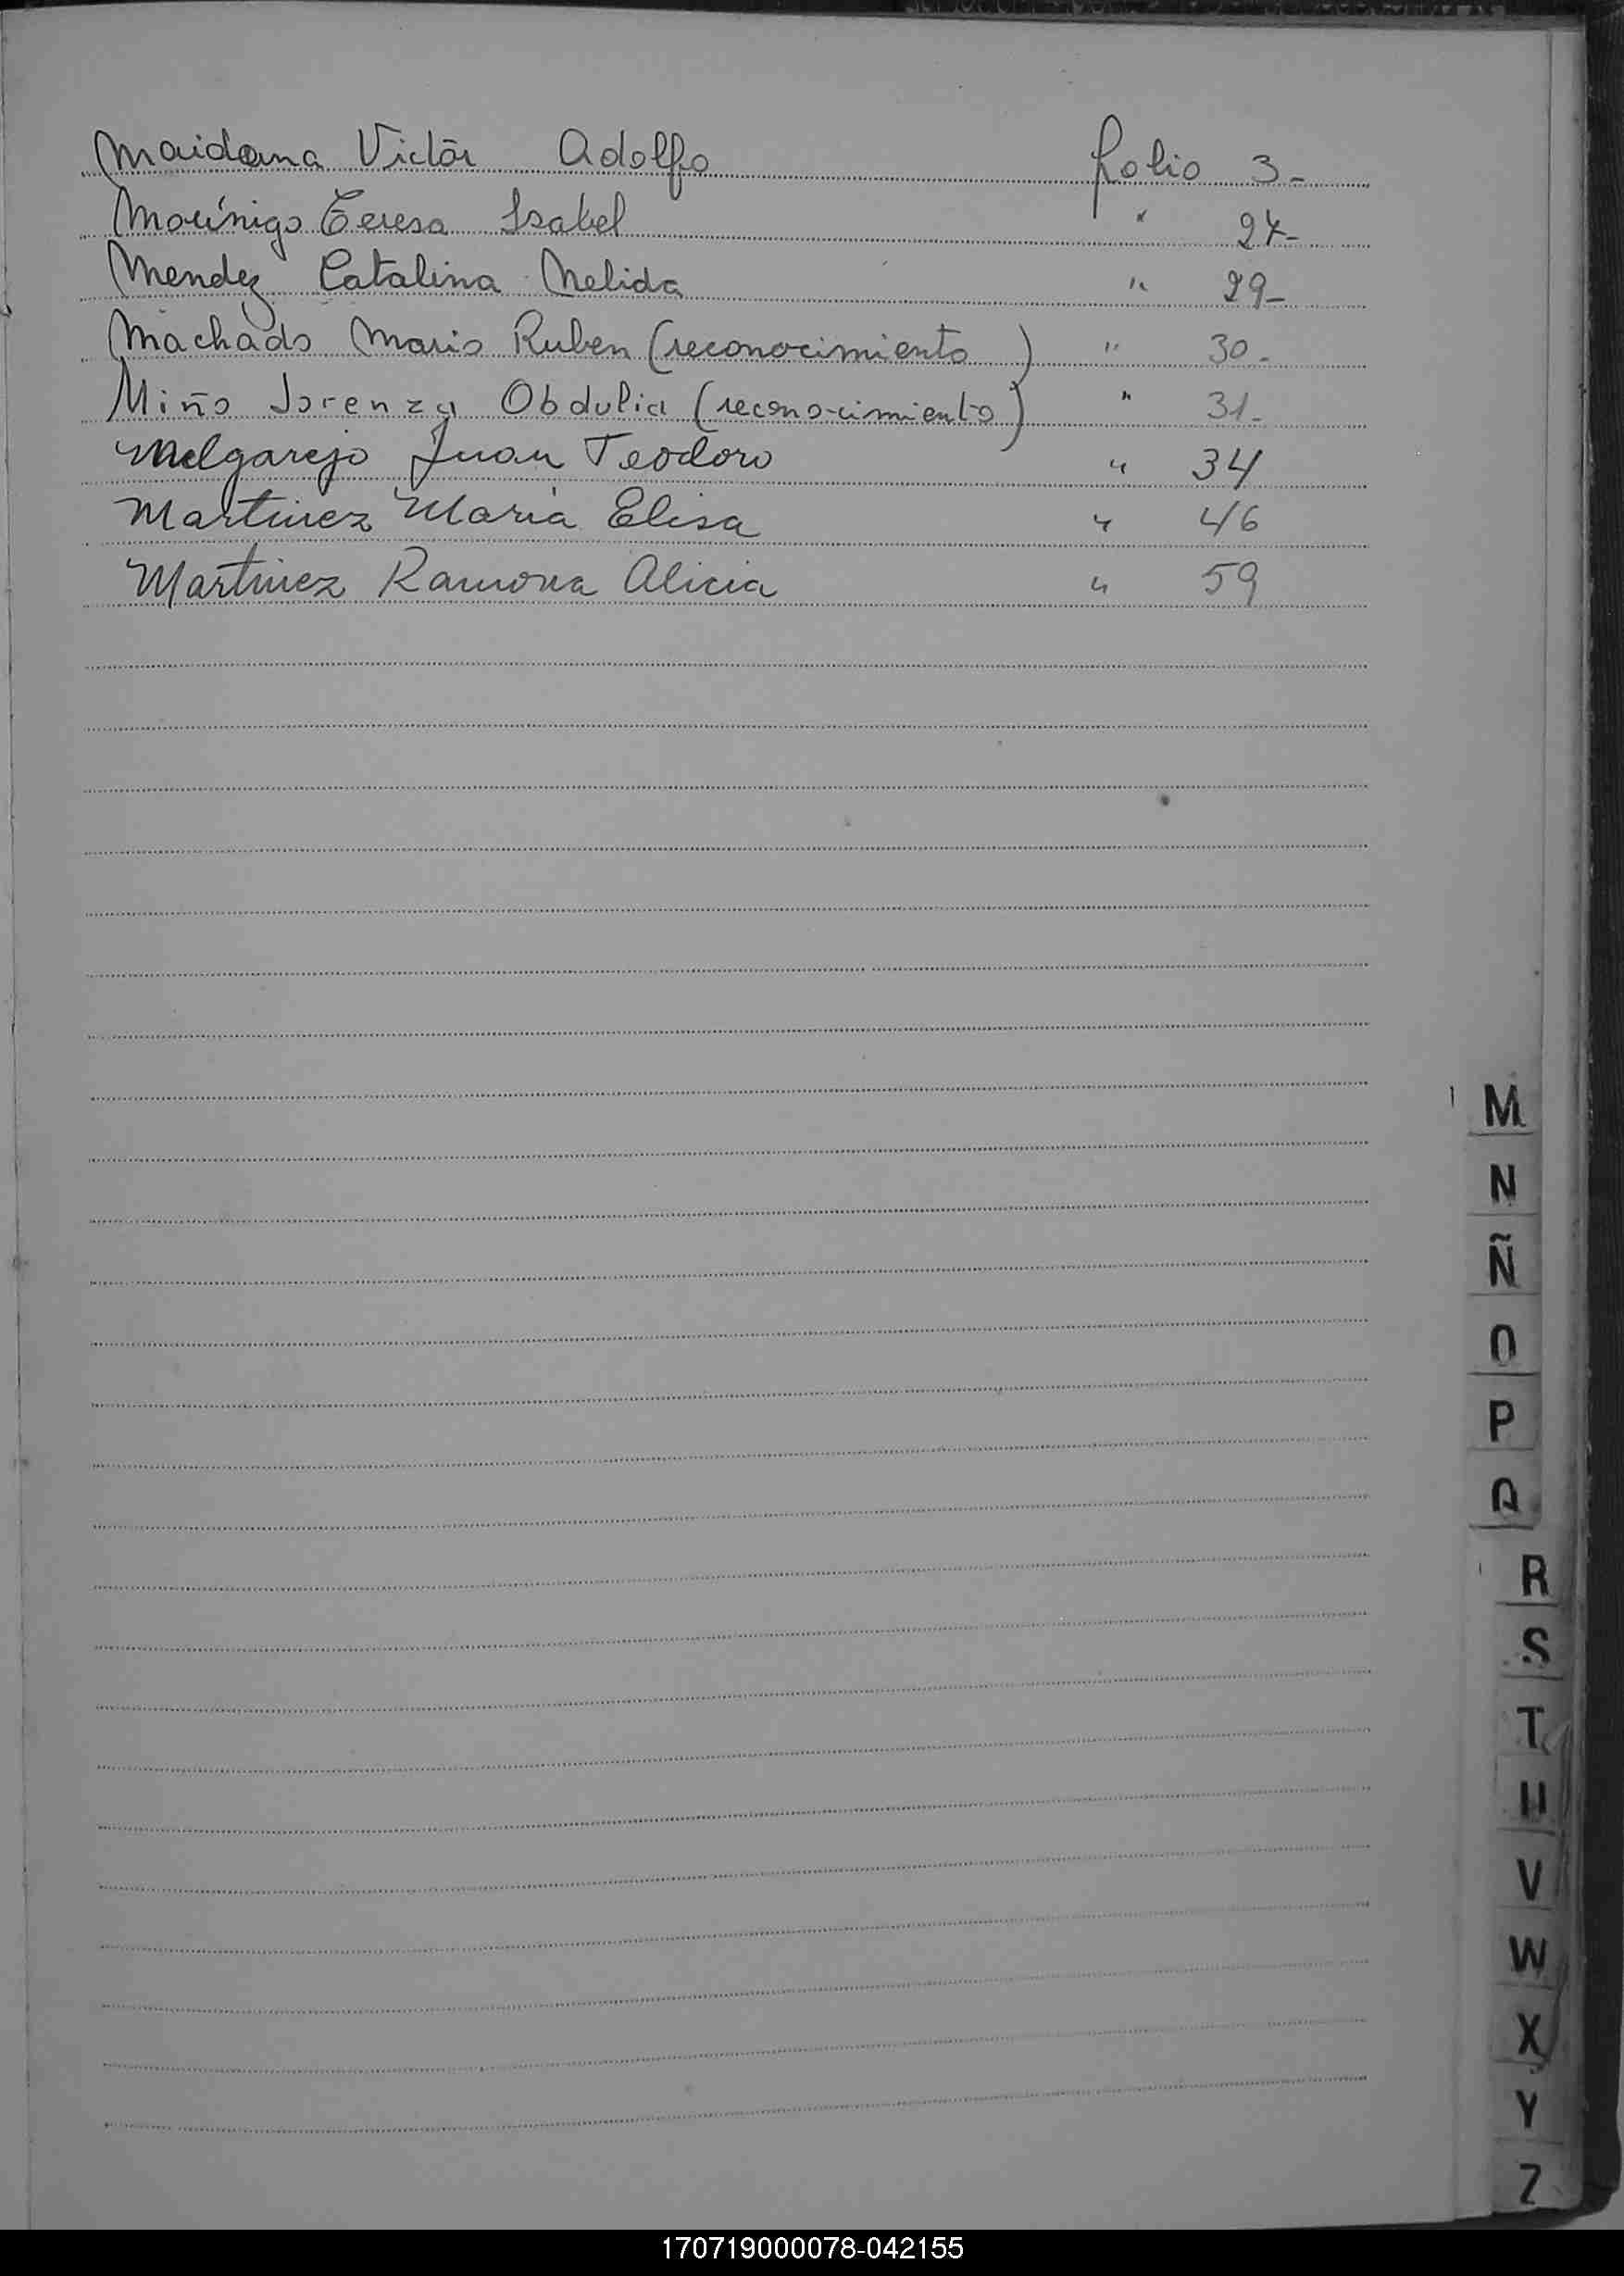 Maidana Victór Adolfo folio 3-
Morínigo Teresa Isabel " 24-
Mendez Catalina Nelida " 29-
Machado Mario Ruben (reconocimiento) " 30-
Miño Lorenza Obdulia (reconocimiento) " 31-
Melgarejo Juan Teodoro " 34
Martinez María Elisa " 46
Martinez Ramona Alicia " 59
M
N
Ñ
O
P
Q
R
S
T
U
V
W
X
Y
Z
170719000078-042155